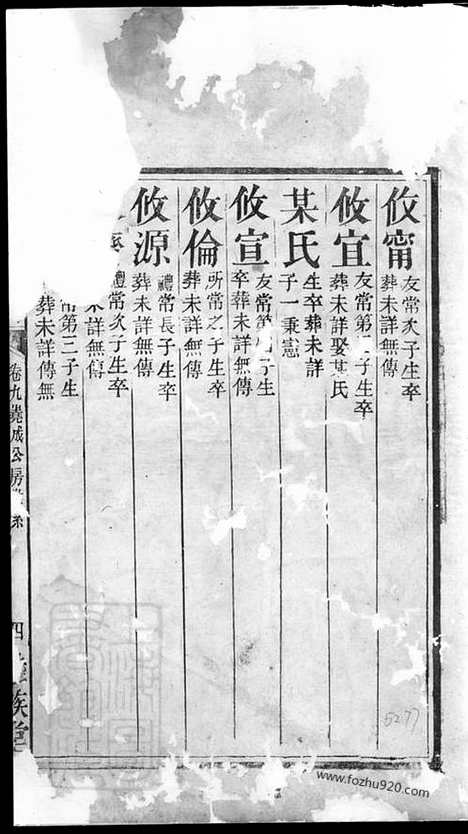 攸甯
友常次子生卒
葬未詳無傳
攸宜
友常第三子生卒
葬未詳娶某氏
某氏
生卒葬未詳
子一秉憲
攸宣
友常第子生
卒葬未詳無傳
攸倫
所常之子生卒
葬未詳無傳
攸源
禮常長子生卒
葬未詳無傳
禮常次子生卒
未詳無傳
常第三子生
葬未詳傳無
卷九堯成公房
四
族
5277
www.fozhu920.com